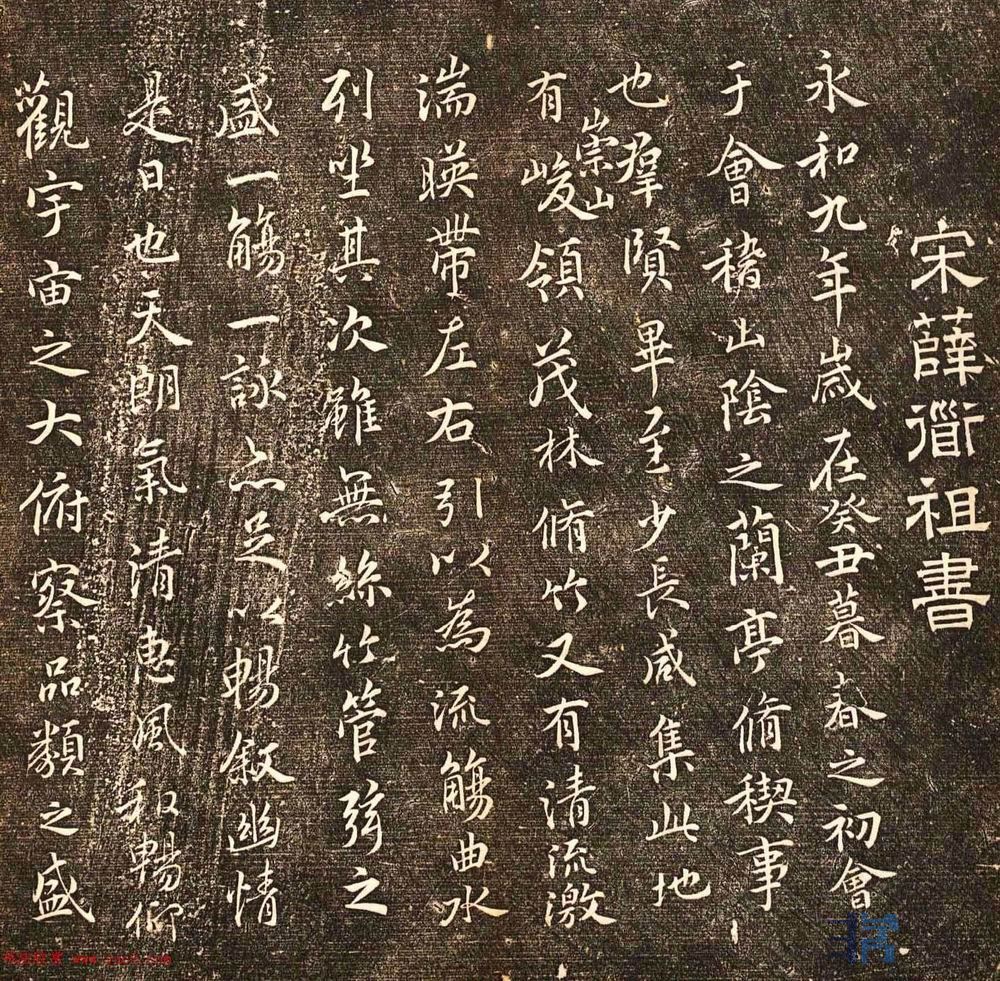 宋薛衜祖書
永和九年歲在癸丑暮春之初會
于會稽山陰之蘭亭脩稧事
也羣賢畢至少長咸集此地
崇山
有峻領茂林脩竹又有清流激
湍暎帶左右引以為流觴曲水
列坐其次雖無絲竹管弦之
盛一觴一詠亦足以暢叙幽情
是日也天朗氣清惠風和暢仰
觀宇宙之大俯察品類之盛